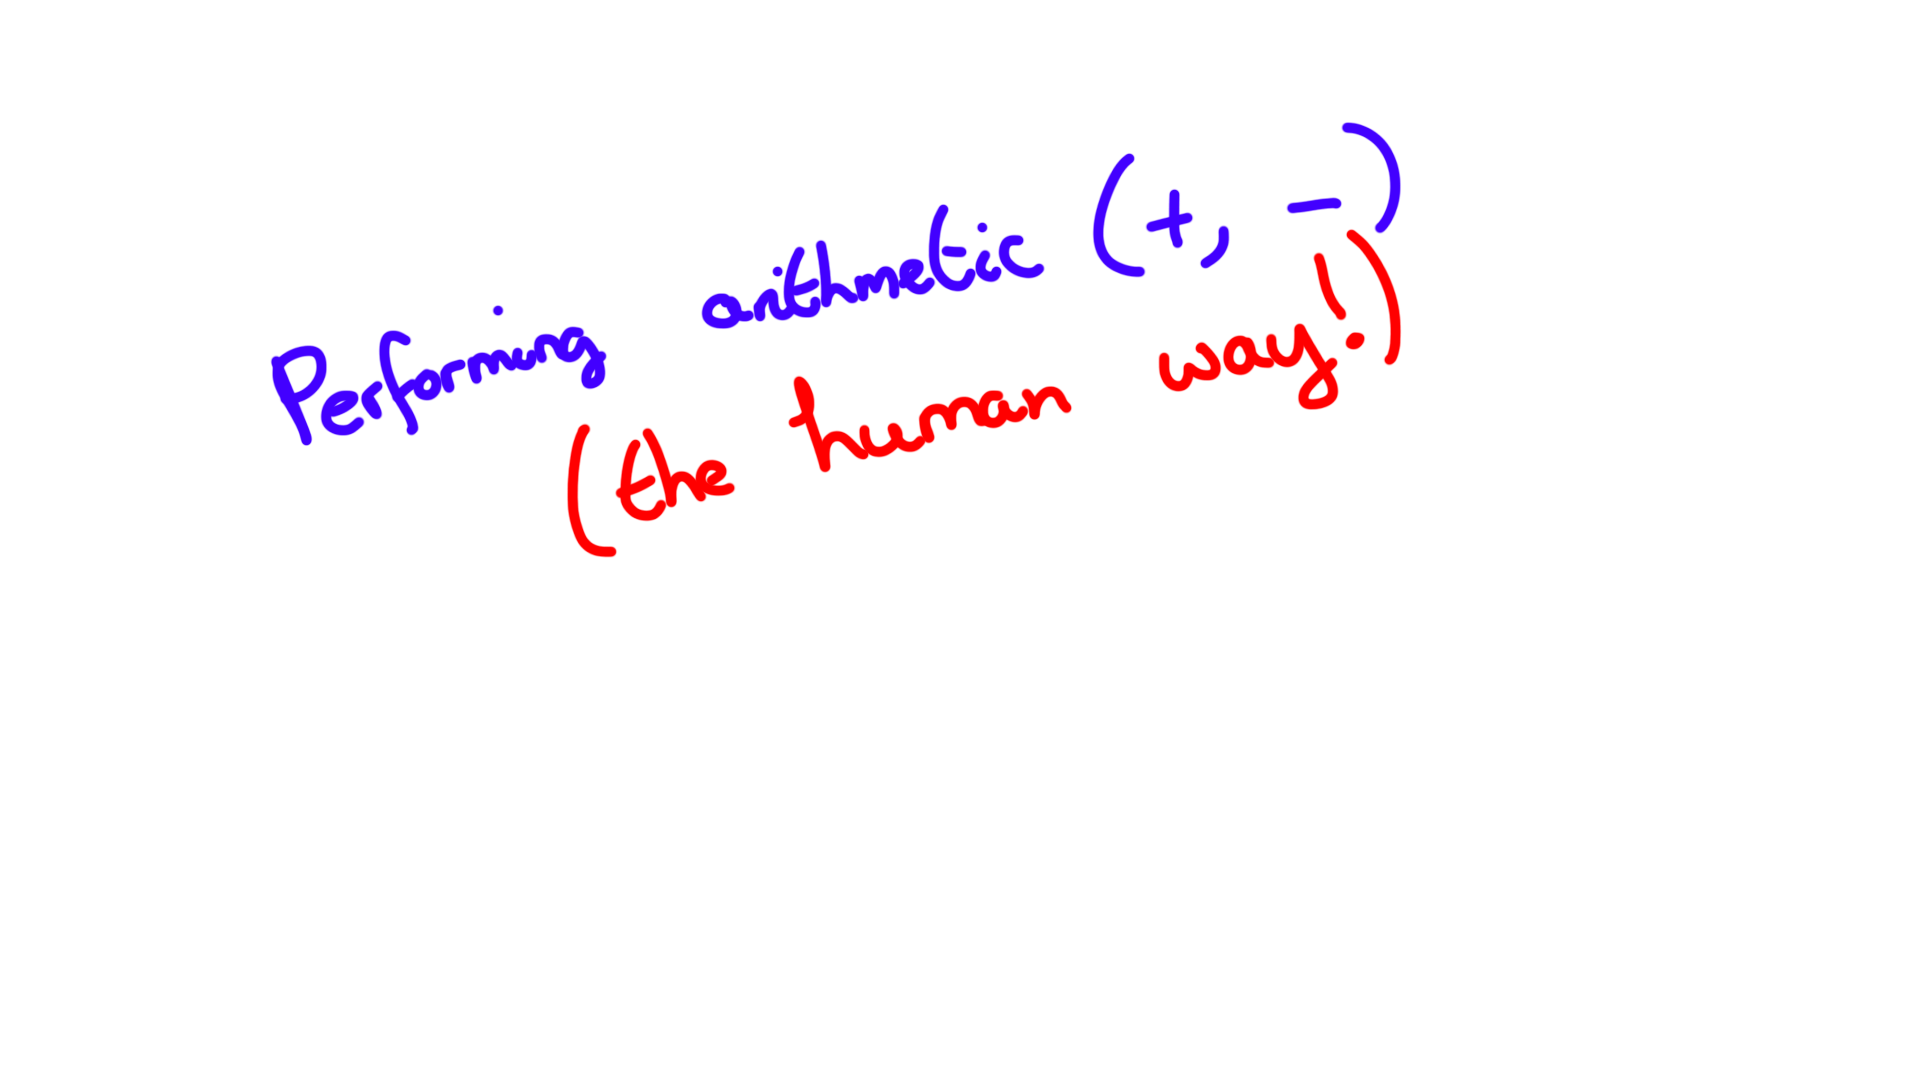 Performing arithmetic (+, -)
(the human way!)